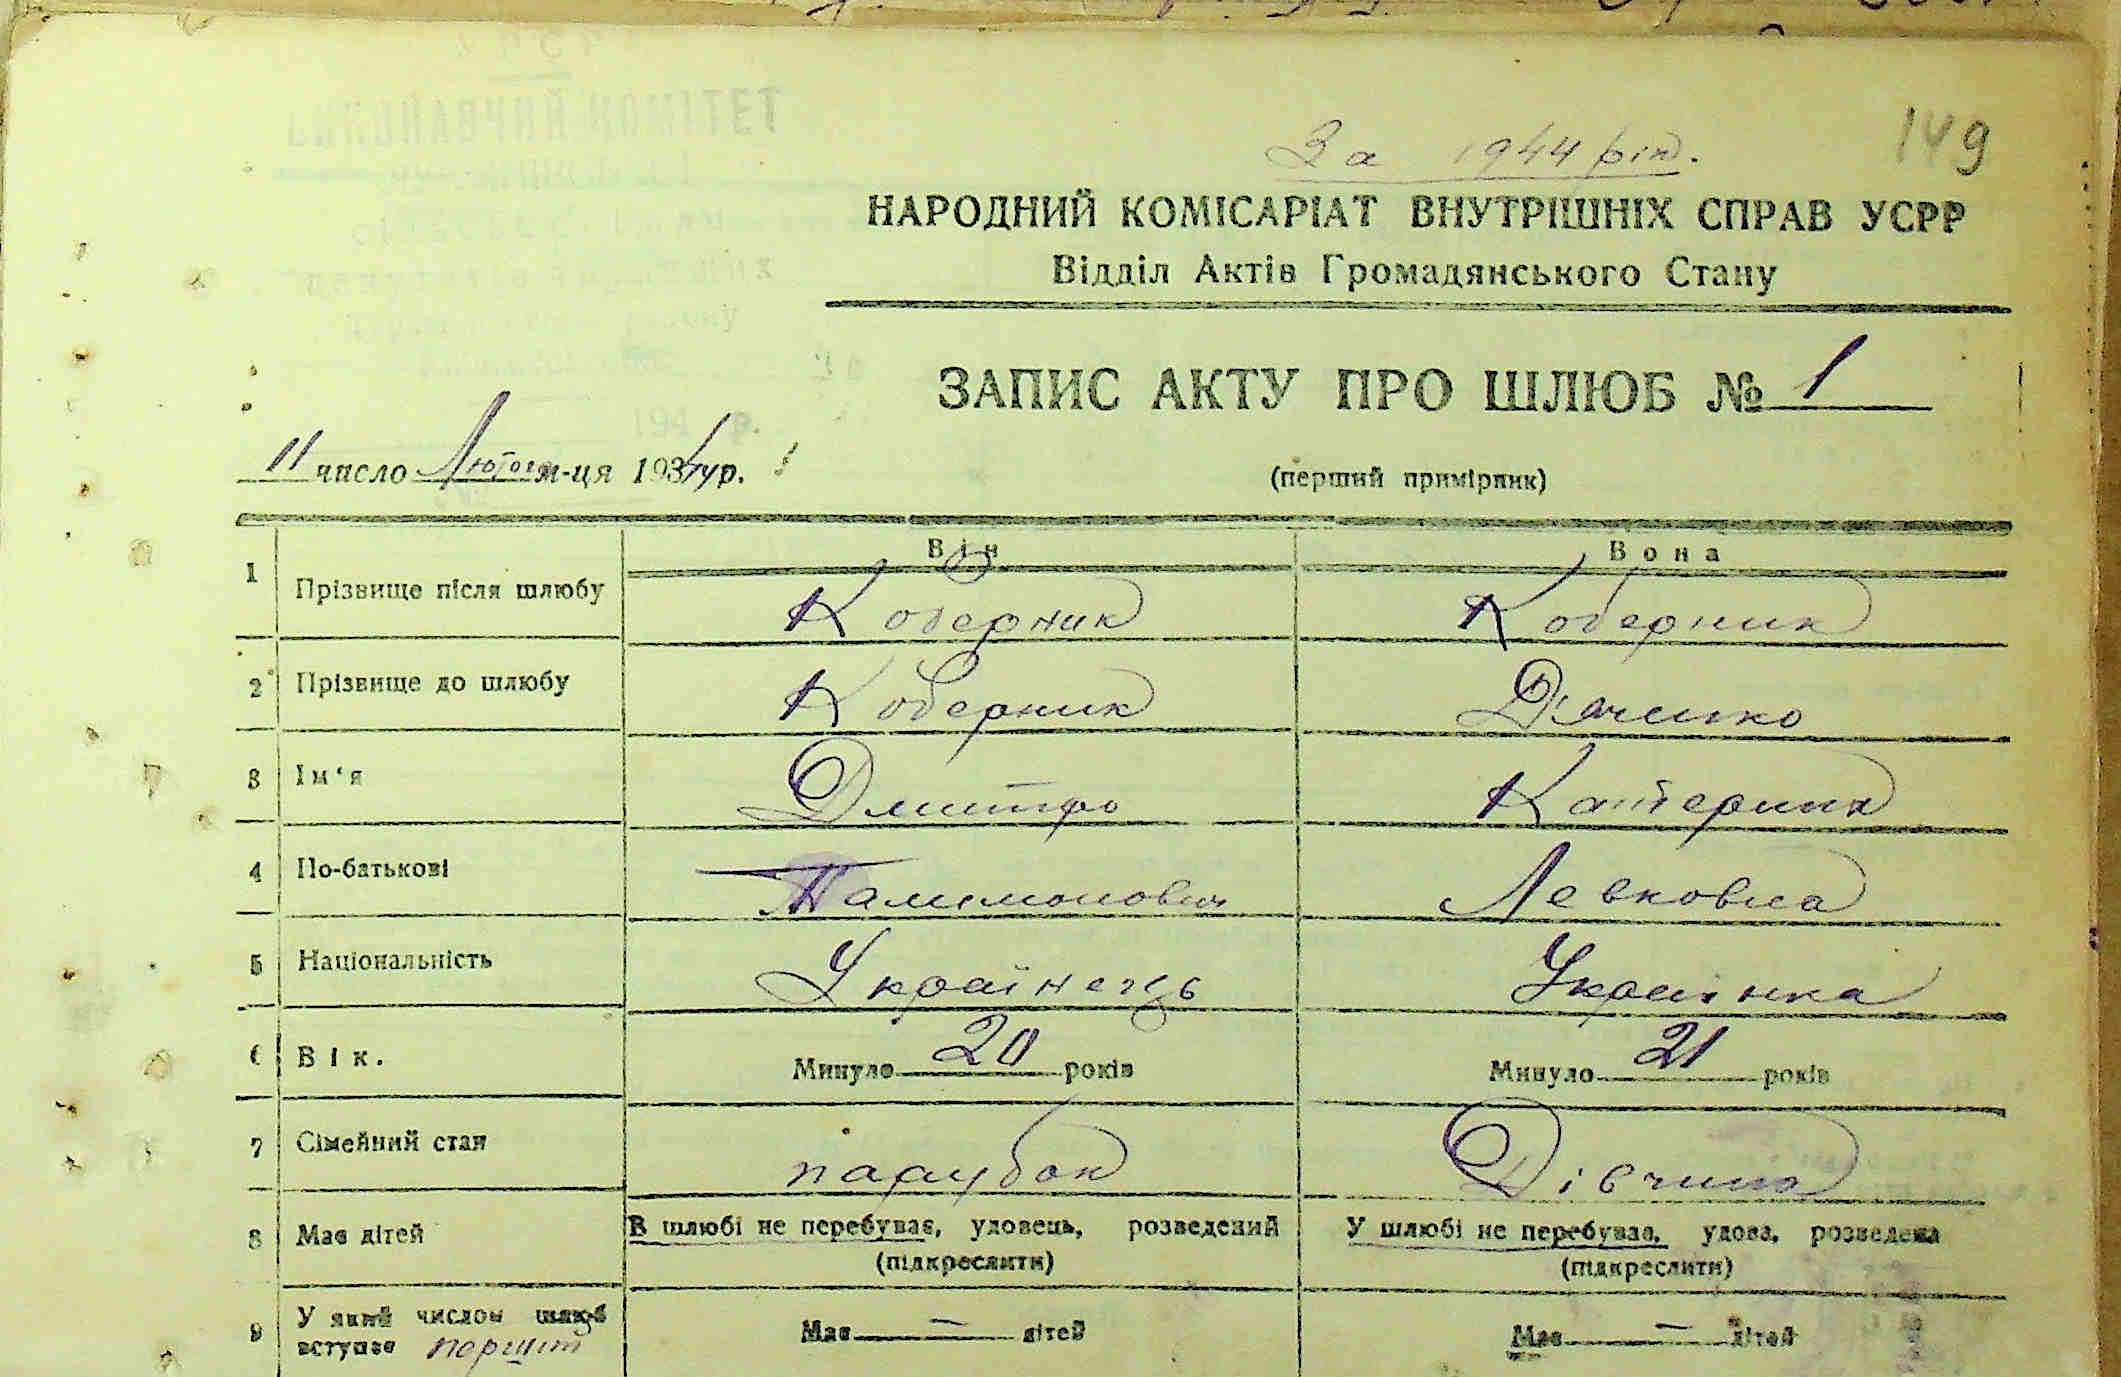 149
За 1944 рік.
НАРОДНИЙ КОМІСАРІАТ ВНУТРІШНІХ СПРАВ УСРР
Відділ Актів Громадянського Стану
ЗАПИС АКТУ ПРО ШЛЮБ № 1
11 число Лютого м-ця 1944 р.
(перший примірник)
Він Вона
1 Прізвище після шлюбу Коберник Коберник
2 Прізвище до шлюбу Коберник Дяченко
3 Ім‘я Дмитро Катерина
4 По-батькові Палимонович Левковна
5 Національність Українець Українка
6 Вік. Минуло 20 років Минуло 21 років
7 Сімейний стан парубок Дівчина
8 Має дітей В шлюбі не перебуває, удовець, розведений У шлюбі не перебуває, удова, розведена
(підкреслити) (підкреслити)
9 У який числом шлюб Має — дітей Має — дітей
вступає перший